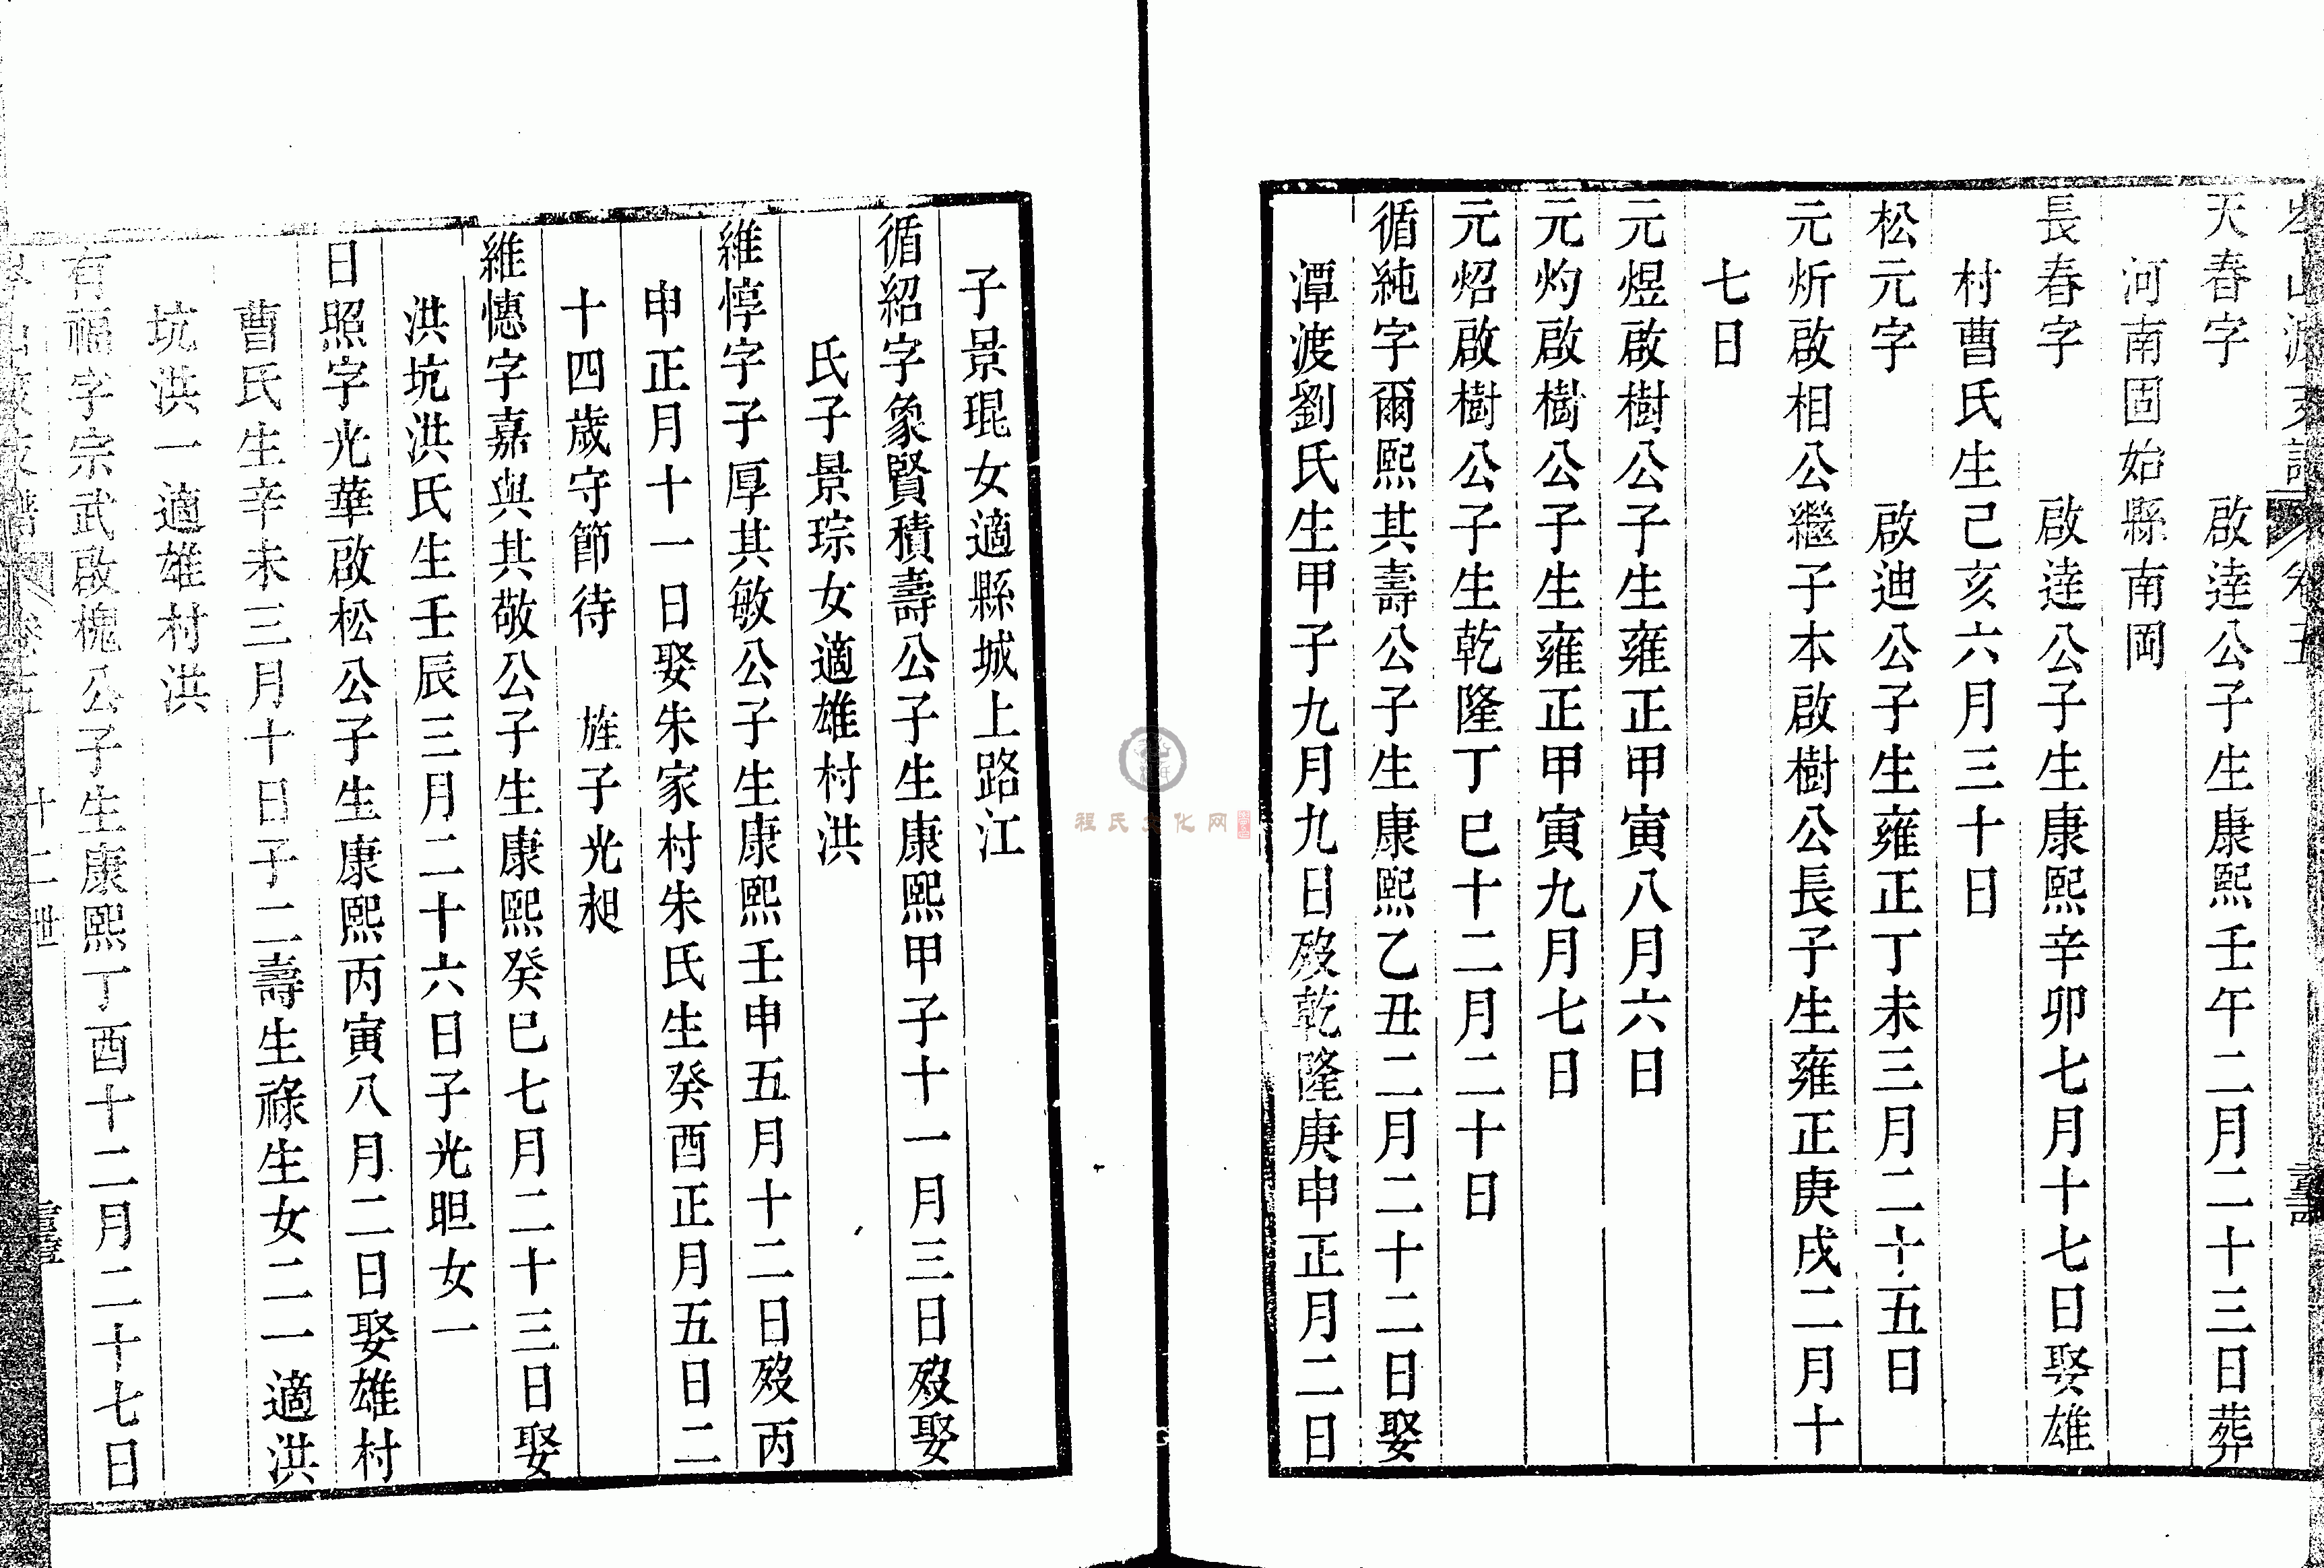 山渡支譜 卷五
天春字 啟達公子生康熙壬午二月二十三日葬
河南固始縣南岡
長春字 啟達公子生康熙辛卯七月十七日娶雄
村曹氏生己亥六月三十日
松元字 啟迪公子生雍正丁未三月二十五日
元炘啟相公繼子本啟樹公長子生雍正庚戌二月十
七日
元煜啟樹公子生雍正甲寅八月六日
元灼啟樹公子生雍正甲寅九月七日
元炤啟樹公子生乾隆丁巳十二月二十日
循純字爾熙其壽公子生康熙乙丑二月二十二日娶
潭渡劉氏生甲子九月九日歿乾隆庚申正月二日
子景琨女適縣城上路江
循紹字象賢積壽公子生康熙甲子十一月三日歿娶
氏子景琮女適雄村洪
維惇字子厚其敏公子生康熙壬申五月十二日歿丙
申正月十一日娶朱家村朱氏生癸酉正月五日二
十四歲守節待 旌子光昶
維憓字嘉與其敬公子生康熙癸巳七月二十三日娶
洪坑洪氏生壬辰三月二十六日子光耼女一
日照字光華啟松公子生康熙丙寅八月二日娶雄村
曹氏生辛未三月十日子二壽生祿生女二一適洪
坑洪一適雄村洪
有福字宗武啟槐公子生康熙丁酉十二月二十七日
支譜 卷五 十二世
程氏文化网